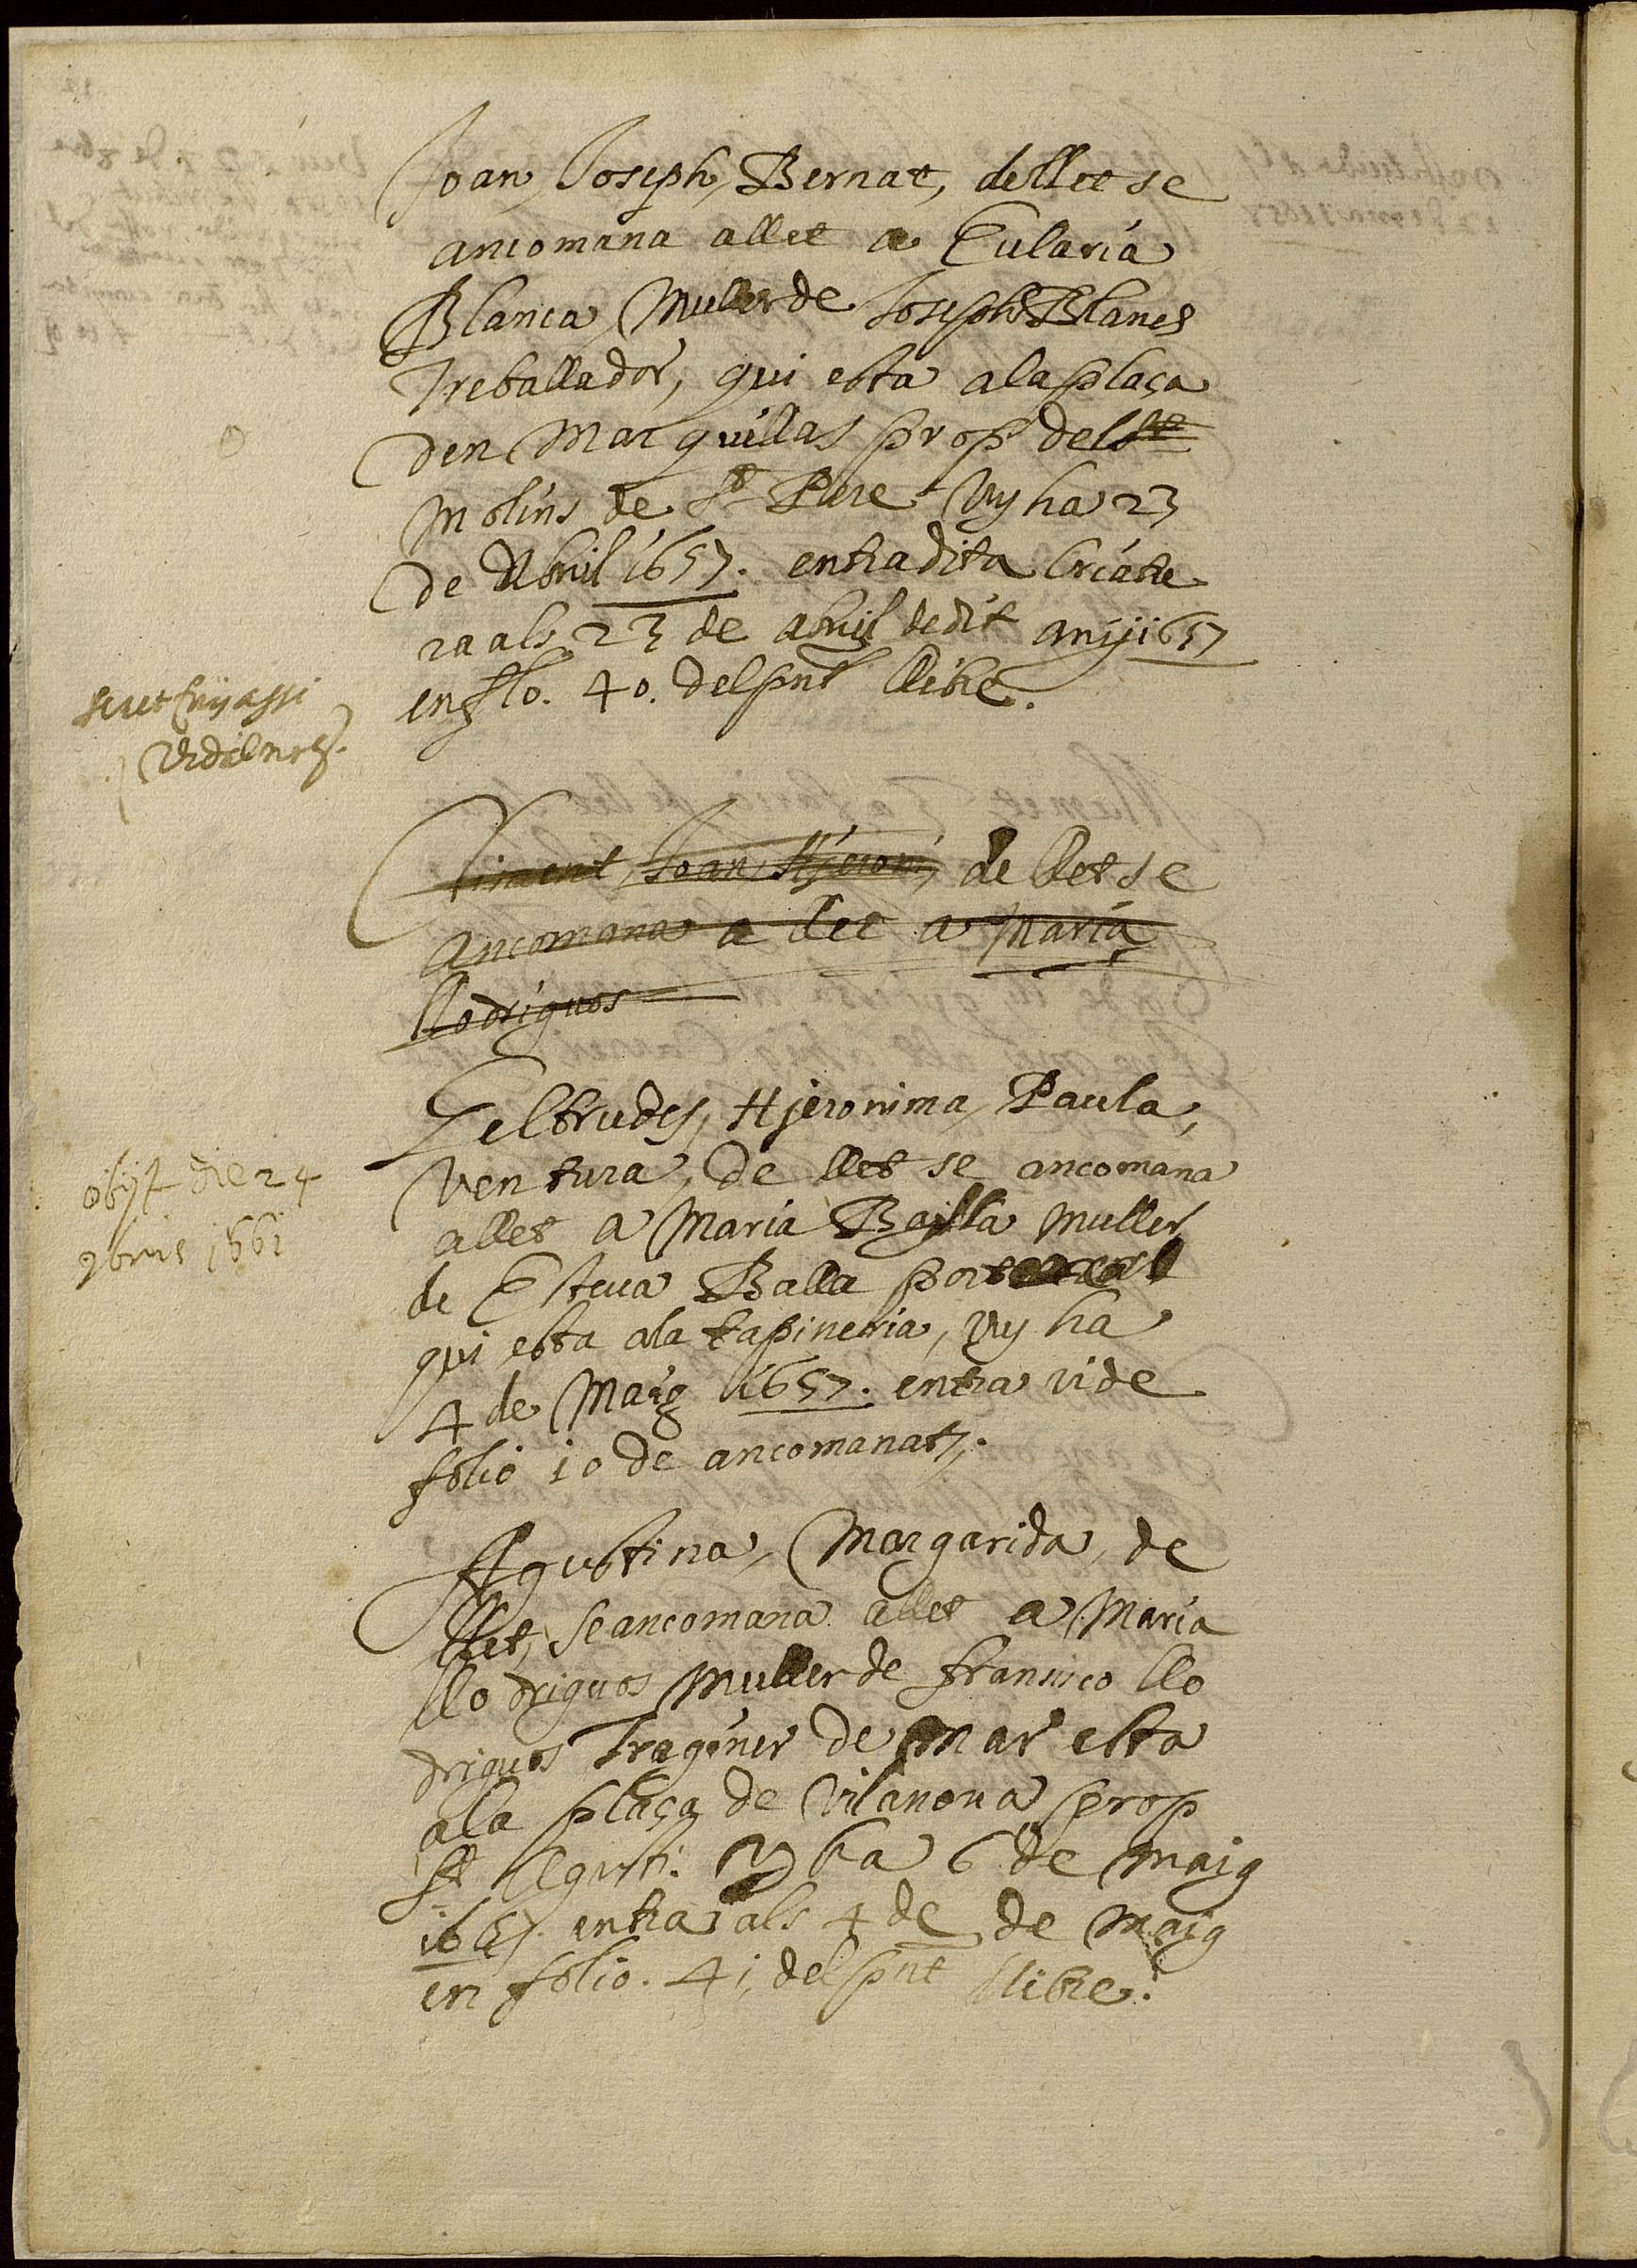 Joan, Joseph, Bernat, de llet se
ancomana allet a Eularia
Blanca Muller de Joseph Blanes
Treballador, qui esta ala plaça
den Marquillas prop dels
molins de St Pere vuy ha 23
de Abril 1657. entra dita criatu
ra als 23 de abril de dit anÿ 1657
en flo. 40. del pnt llibre.
Climent, Joan, Hjeroni, de llet se
ancomana a llet a Maria
Llodriguos
Geltrudes, Hjeronima, Paula,
Ventura, de llet se ancomana
allet a Maria Baylla muller
de Esteva Balla
qui esta ala tapineria, vuy ha
4 de Maig 1657. entra vide
folio 10 de ancomanats.
Agustina, Margarida, de
llet, se ancomana allet a Maria
llodriguos muller de fransisco llo
driguos Traginer de mar esta
ala plaça de Vilanova prop
St Agusti. vuy ha 6 de maig
1657 entra als 4 de de maig
en folio. 41, del pnt llibre.
obijt die 24
9bris 1661